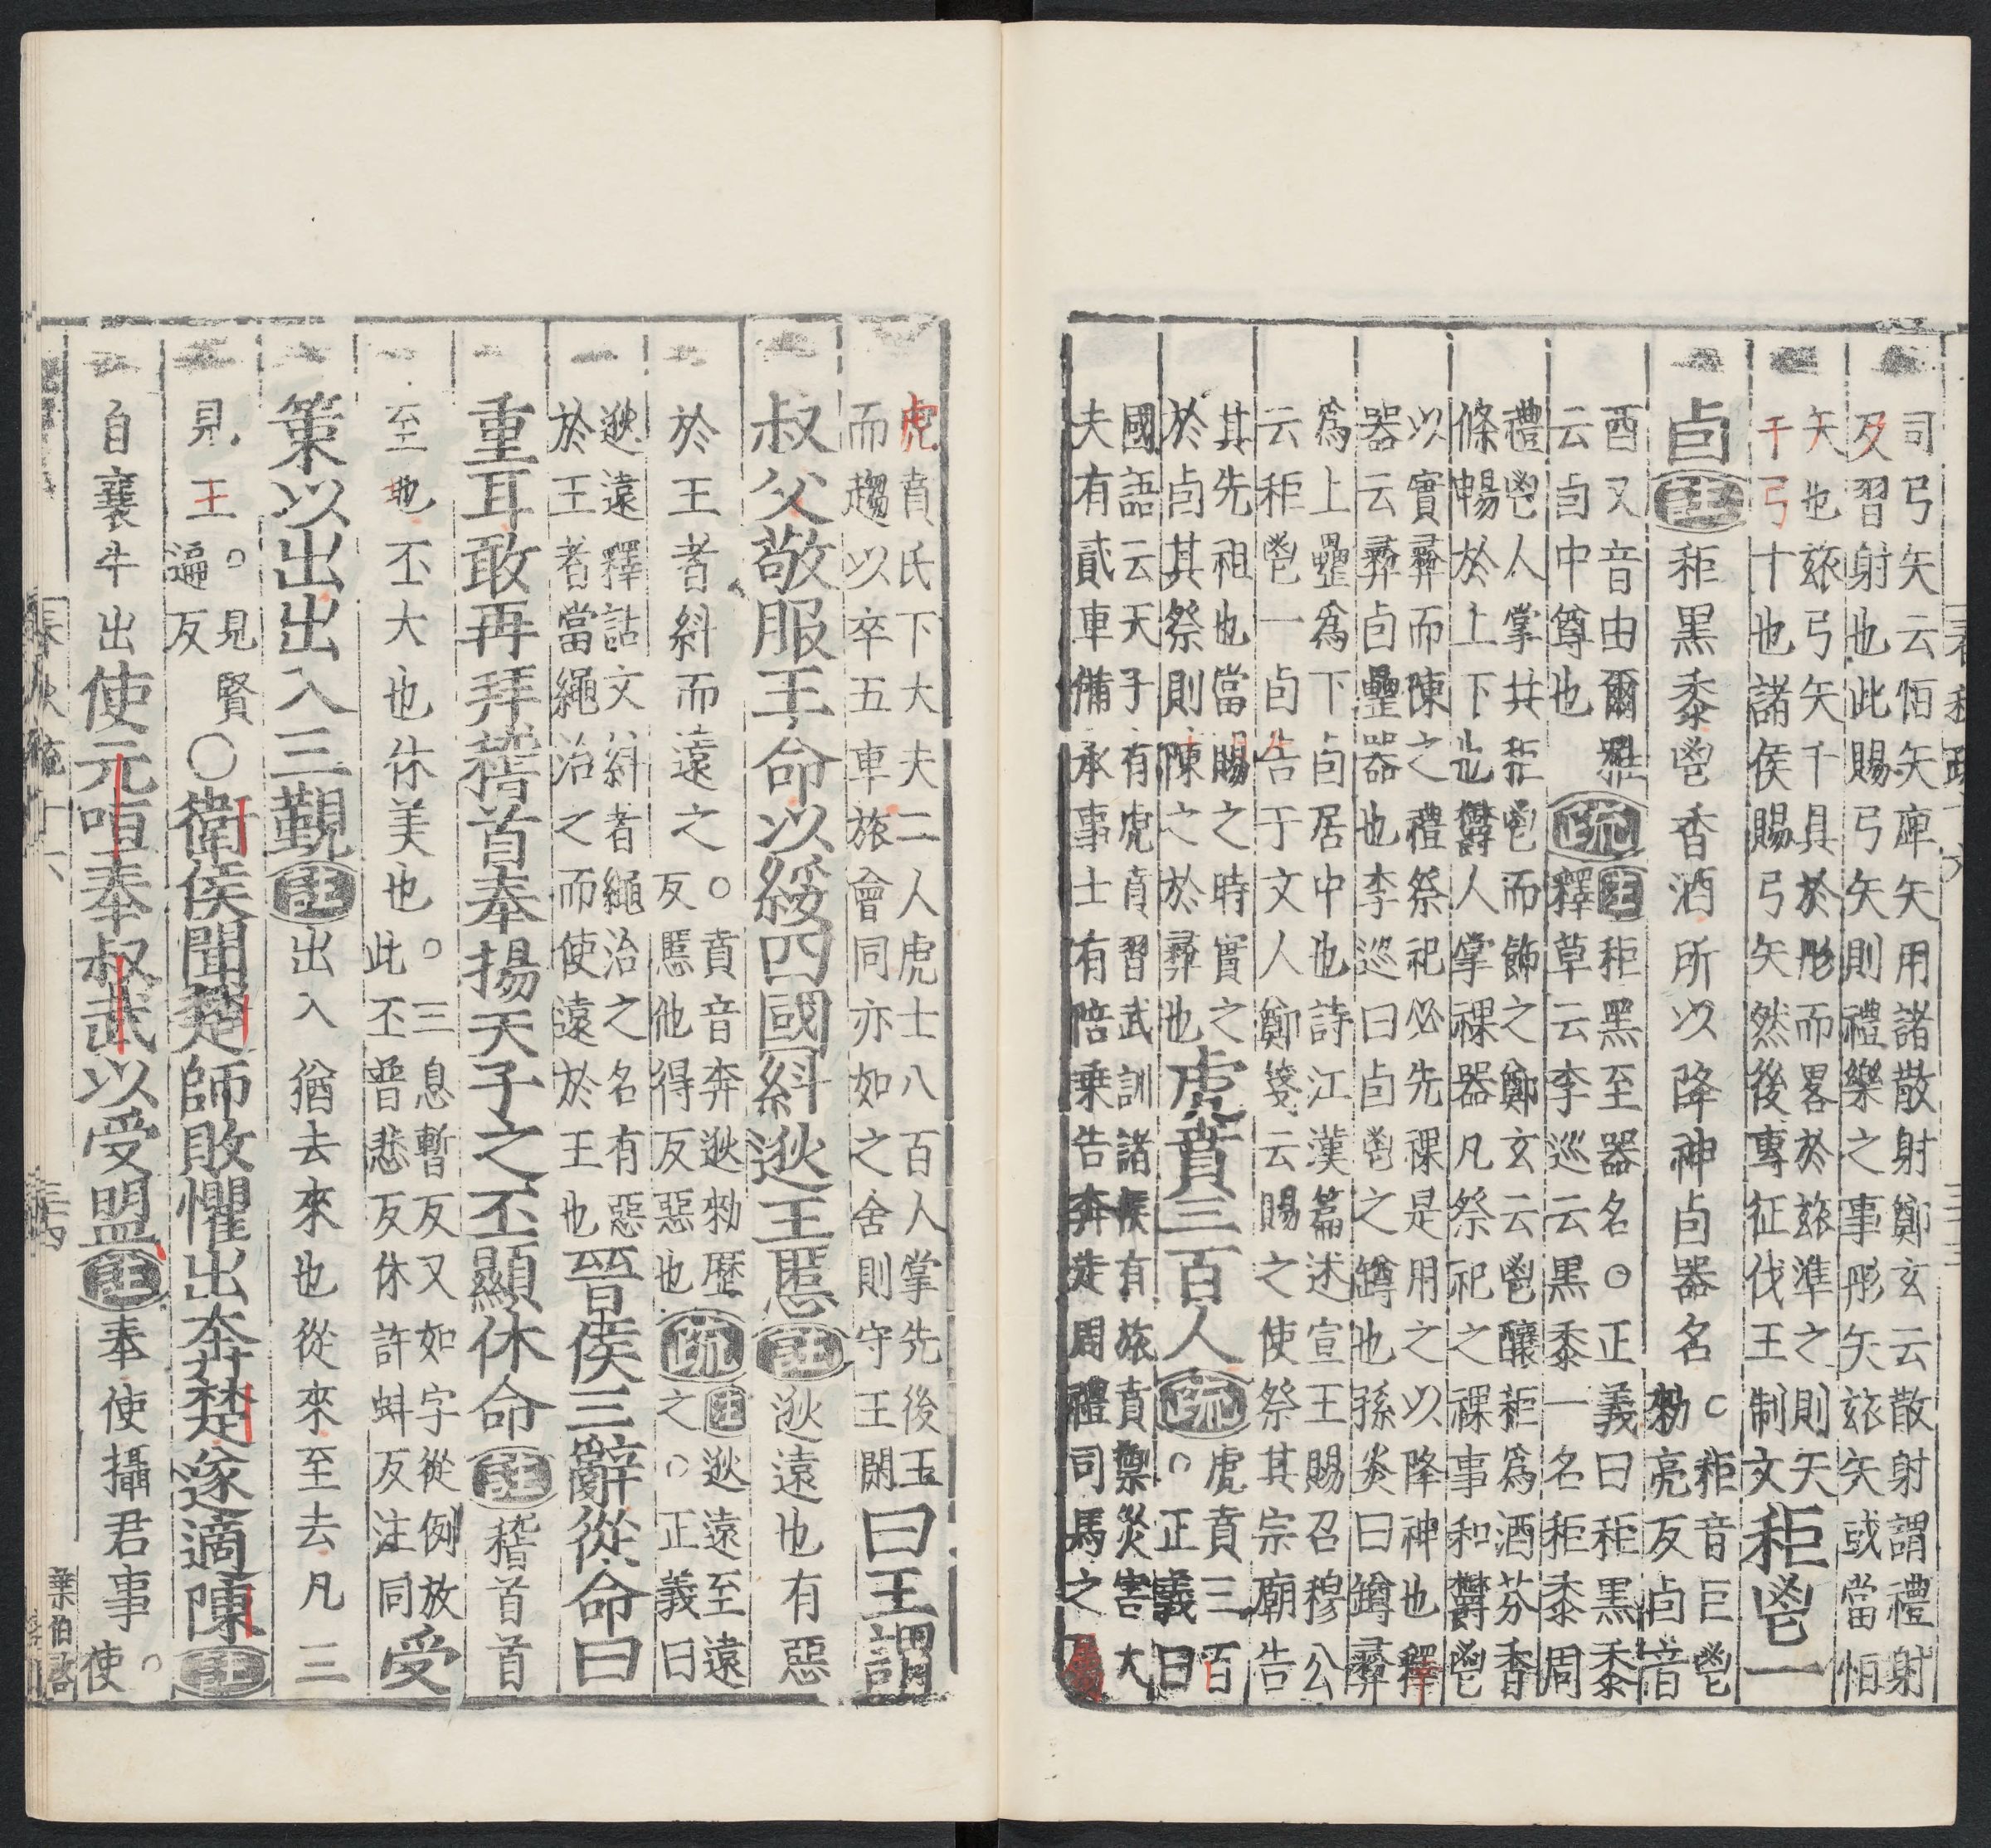 司弓矢云恒矢庳矢用諸散射鄭玄云散射謂禮射
及習射也此賜弓矢則禮樂之事彤矢玈矢或當恒
矢也玈弓矢千具於彤而畧於玈準之則矢
千弓十也諸侯賜弓矢然後專征伐王制文
秬鬯一
卣
注
秬黑黍鬯香酒所以降神卣器名
○秬音巨鬯
勑亮反卣音
酉又音由爾雅
云卣中尊也
疏
注秬黑至器名○正義曰秬黑黍
釋草云李巡云黑黍一名秬黍周
禮鬯人掌共秬鬯而飾之鄭玄云鬯釀秬為酒芬香
條暢於上下也鬱人掌祼器凡祭祀之祼事和鬱鬯
以實彞而陳之禮祭祀必先祼是用之以降神也釋
器云彞卣罍器也李巡曰卣鬯之罇也孫炎曰罇彞
為上罍為下卣居中也詩江漢篇述宣王賜召穆公
云秬鬯一卣告于文人鄭箋云賜之使祭其宗廟告
其先祖也當賜之時實之
於卣其祭則陳之於彞也
虎賁三百人
疏
虎賁三百
○正義曰
國語云天子有虎賁習武訓諸侯有旅賁禦災害大
夫有貳車備承事士有陪乗告奔走周禮司馬之屬
虎賁氏下大夫二人虎士八百人掌先後王
而趨以卒五車旅會同亦如之舍則守王閑
曰王謂
叔父敬服王命以綏四國糾逖王慝
注
逖遠也有惡
於王者糾而遠之
○賁音奔逖勑歷
反慝他得反惡也
疏
注逖遠至遠
之○正義曰
逖遠釋詁文糾者繩治之名有惡
於王者當繩治之而使遠於王也
晉侯三辭從命曰
重耳敢再拜稽首奉揚天子之丕顯休命
注
稽首首
至地丕大也休美也
○三息暫反又如字從例放
此丕普悲反休許蚪反注同
受
策以出出入三覲
注
出入猶去來也從來至去凡三
見王
○見賢
遍反
○衛侯聞楚師敗懼出奔楚遂適陳
注
自襄牛出
使元咺奉叔武以受盟
注
奉使攝君事
○
使
葉伯啟